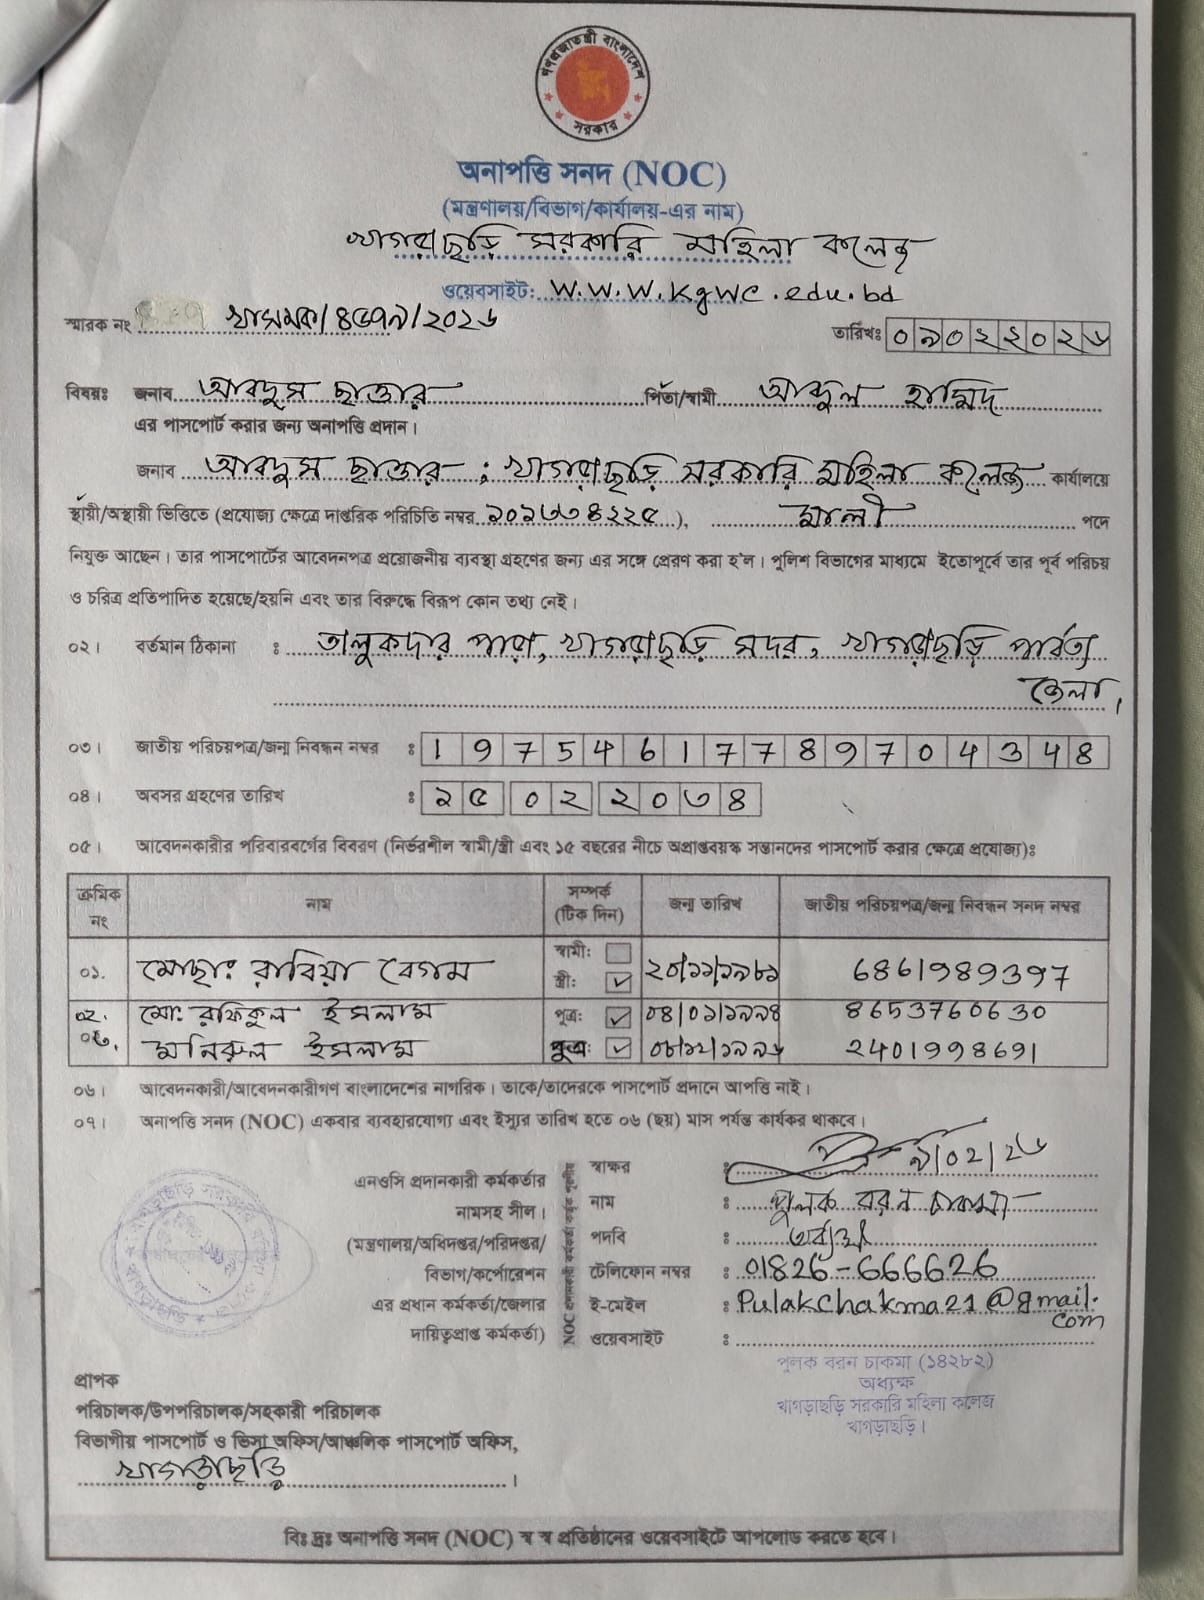 গণপ্রজাতন্ত্রী বাংলাদেশ
সরকার
অনাপত্তি সনদ (NOC)
(মন্ত্রণালয়/বিভাগ/কার্যালয়-এর নাম)
খাগড়াছড়ি সরকারি মহিলা কলেজ
ওয়েবসাইট: W.W.W.kgwc.edu.bd
স্মারক নং খাসমক/৪৫৭৯/২০২৬
তারিখঃ ০৯০২২০২৬
বিষয়ঃ জনাব আবদুস ছাত্তার পিতা/স্বামী আব্দুল হামিদ
এর পাসপোর্ট করার জন্য অনাপত্তি প্রদান।
জনাব আবদুস ছাত্তার ; খাগড়াছড়ি সরকারি মহিলা কলেজ কার্যালয়ে
স্থায়ী/অস্থায়ী ভিত্তিতে (প্রযোজ্য ক্ষেত্রে দাপ্তরিক পরিচিতি নম্বর ২০১৩৩৪২২৫), মালী পদে
নিযুক্ত আছেন। তার পাসপোর্টের আবেদনপত্র প্রয়োজনীয় ব্যবস্থা গ্রহণের জন্য এর সঙ্গে প্রেরণ করা হ'ল। পুলিশ বিভাগের মাধ্যমে ইতোপূর্বে তার পূর্ব পরিচয়
ও চরিত্র প্রতিপাদিত হয়েছে/হয়নি এবং তার বিরুদ্ধে বিরূপ কোন তথ্য নেই।
০২। বর্তমান ঠিকানা : তালুকদার পাড়া, খাগড়াছড়ি সদর, খাগড়াছড়ি পার্বত্য
জেলা।
০৩। জাতীয় পরিচয়পত্র/জন্ম নিবন্ধন নম্বর : 19754617789704348
০৪। অবসর গ্রহণের তারিখ : ২৫ ০২ ২০৩৪
০৫। আবেদনকারীর পরিবারবর্গের বিবরণ (নির্ভরশীল স্বামী/স্ত্রী এবং ১৫ বছরের নীচে অপ্রাপ্তবয়স্ক সন্তানদের পাসপোর্ট করার ক্ষেত্রে প্রযোজ্য):
ক্রমিক নং নাম সম্পর্ক (টিক দিন) জন্ম তারিখ জাতীয় পরিচয়পত্র/জন্ম নিবন্ধন সনদ নম্বর
০১. মোছাঃ রাবিয়া বেগম স্বামী: স্ত্রী: ✓ ২০/১১/১৯৮১ 6861989397
০২. মো: রফিকুল ইসলাম পুত্র: ✓ ০৪/০১/১৯৯৪ 8653760630
০৩. মনিরুল ইসলাম পুত্র: ✓ 2401998691
০৬। আবেদনকারী/আবেদনকারীগণ বাংলাদেশের নাগরিক। তাকে/তাদেরকে পাসপোর্ট প্রদানে আপত্তি নাই।
০৭। অনাপত্তি সনদ (NOC) একবার ব্যবহারযোগ্য এবং ইস্যুর তারিখ হতে ০৬ (ছয়) মাস পর্যন্ত কার্যকর থাকবে।
এনওসি প্রদানকারী কর্মকর্তার
নামসহ সীল।
(মন্ত্রণালয়/অধিদপ্তর/পরিদপ্তর/
বিভাগ/কর্পোরেশন
এর প্রধান কর্মকর্তা/জেলার
দায়িত্বপ্রাপ্ত কর্মকর্তা)
NOC প্রদানকারী কর্মকর্তা কর্তৃক পূরণীয়
স্বাক্ষর : ৯/০২/২৬
নাম : পুলক বরন চাকমা
পদবি : অধ্যক্ষ
টেলিফোন নম্বর : 01826-666626
ই-মেইল : Pulakchakma21@gmail.
com
ওয়েবসাইট :
পুলক বরন চাকমা (১৪২৮২)
অধ্যক্ষ
খাগড়াছড়ি সরকারি মহিলা কলেজ
খাগড়াছড়ি।
প্রাপক
পরিচালক/উপপরিচালক/সহকারী পরিচালক
বিভাগীয় পাসপোর্ট ও ভিসা অফিস/আঞ্চলিক পাসপোর্ট অফিস,
খাগড়াছড়ি।
বিঃ দ্রঃ অনাপত্তি সনদ (NOC) স্ব স্ব প্রতিষ্ঠানের ওয়েবসাইটে আপলোড করতে হবে।